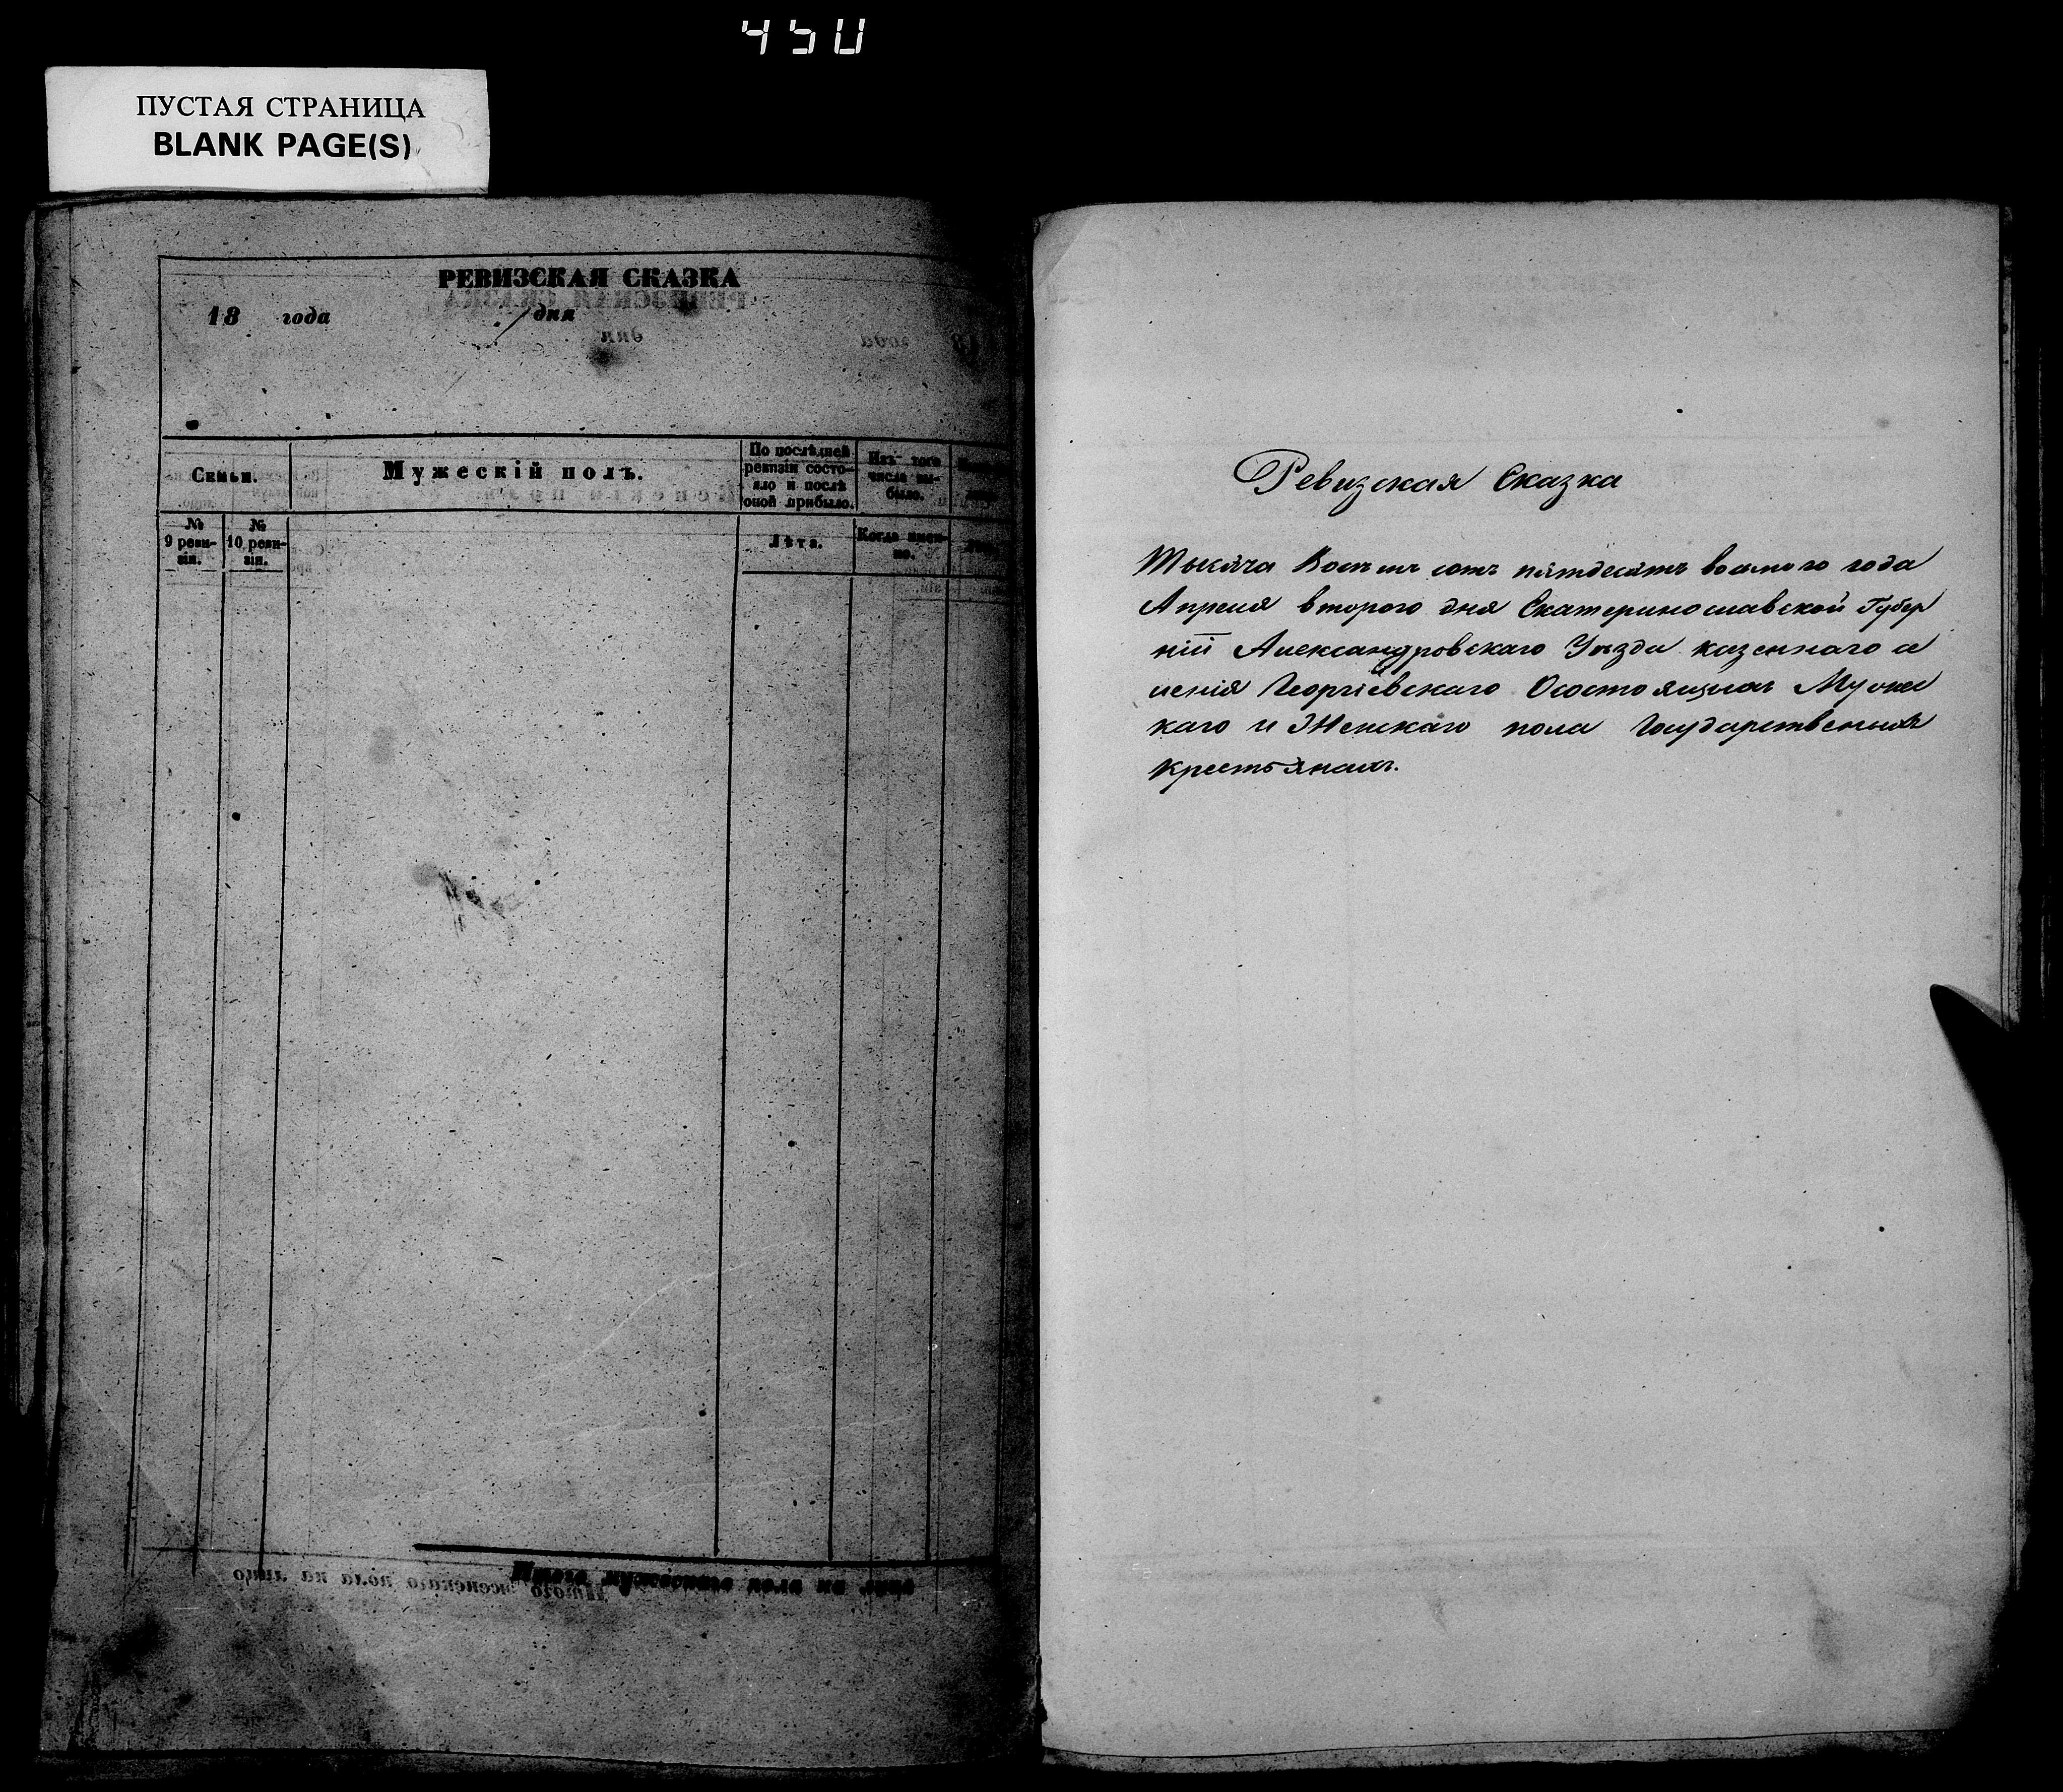 450
ПУСТАЯ СТРАНИЦА
BLANK PAGE(S)
РЕВИЗСКАЯ СКАЗКА
18 года дня
Семьи.
Мужескій полъ.
По послѣдней ревизіи состояло и послѣ оной прибыло.
Изъ того числа выбыло.
№ 9 ревизіи.
№ 10 ревизіи.
Лѣта.
Когда именно.
Итого мужескаго пола на лицо
Ревизская Сказка
Тысяча Восемь сотъ пятдесятъ восмого года
Апреля второго дня Екатеринославской Губер
ніи Александровскаго Уезда казеннаго се
ленія Георгіевскаго Осостоящихъ Мужес
каго и Женскаго пола Государственныхъ
крестьянахъ.